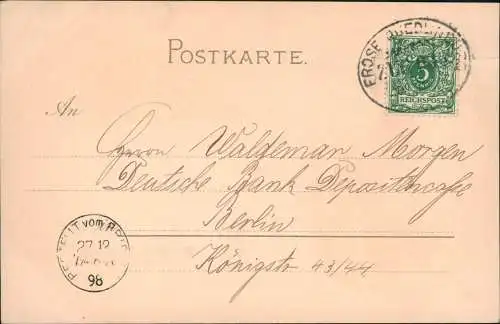 POSTKARTE.
FROSE QUEDLIN
5
REICHSPOST
An
Herrn Waldemar Morgen
Deutsche Bank Depositencasse
Berlin
Königstr 43/44
BESTELLT vom
27 12
98